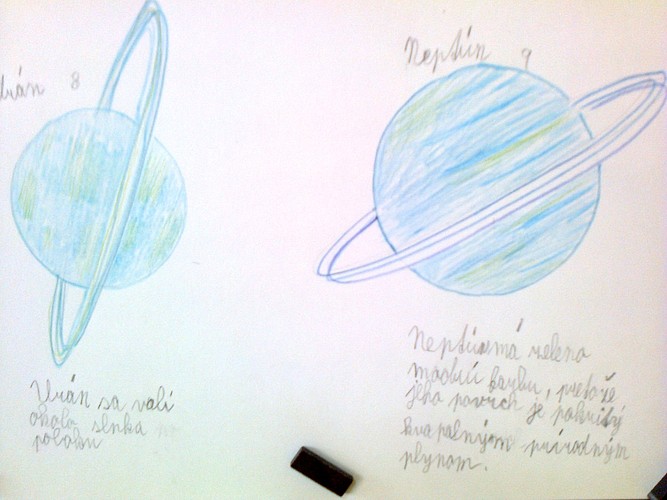 Urán 8
Neptún 9
Urán sa valí
okolo slnka po
poloku
Neptún má zeleno
modrú farbu, pretože
jeho povrch je pokritý
kvapalným prírodným
plynom.